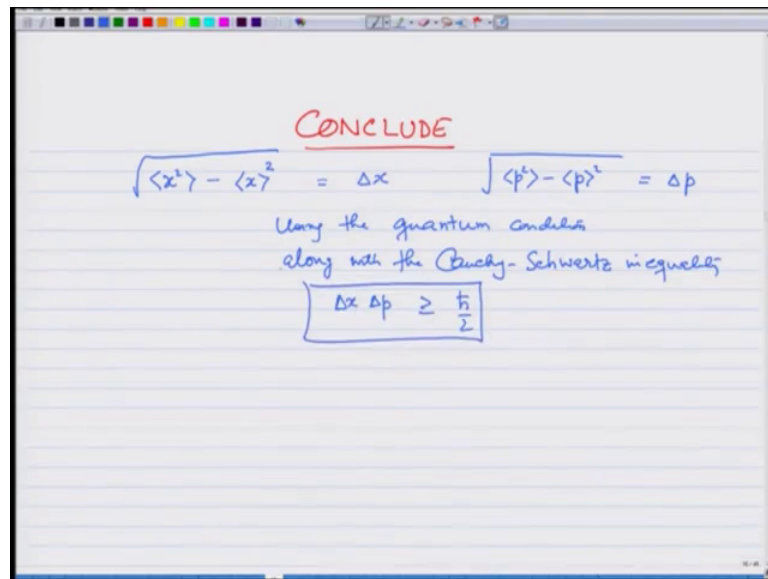 CONCLUDE
√(<x²> - <x>²) = Δx √(<p²> - <p>²) = Δp
Using the quantum condition
along with the Cauchy-Schwertz inequality
Δx Δp ≥ ħ/2